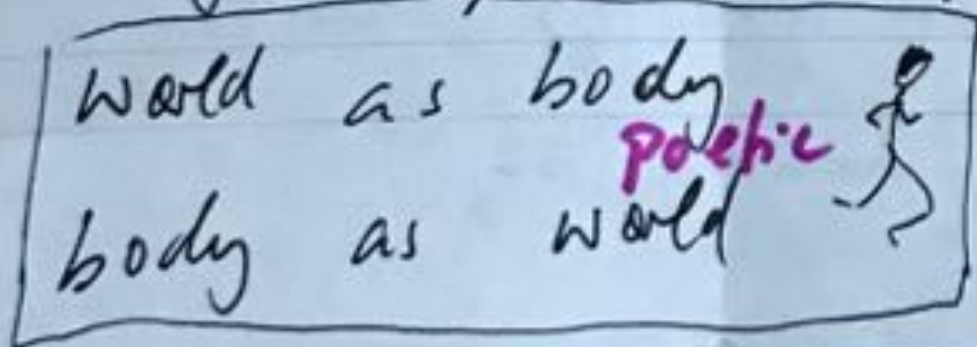 world as body
poetic
body as world